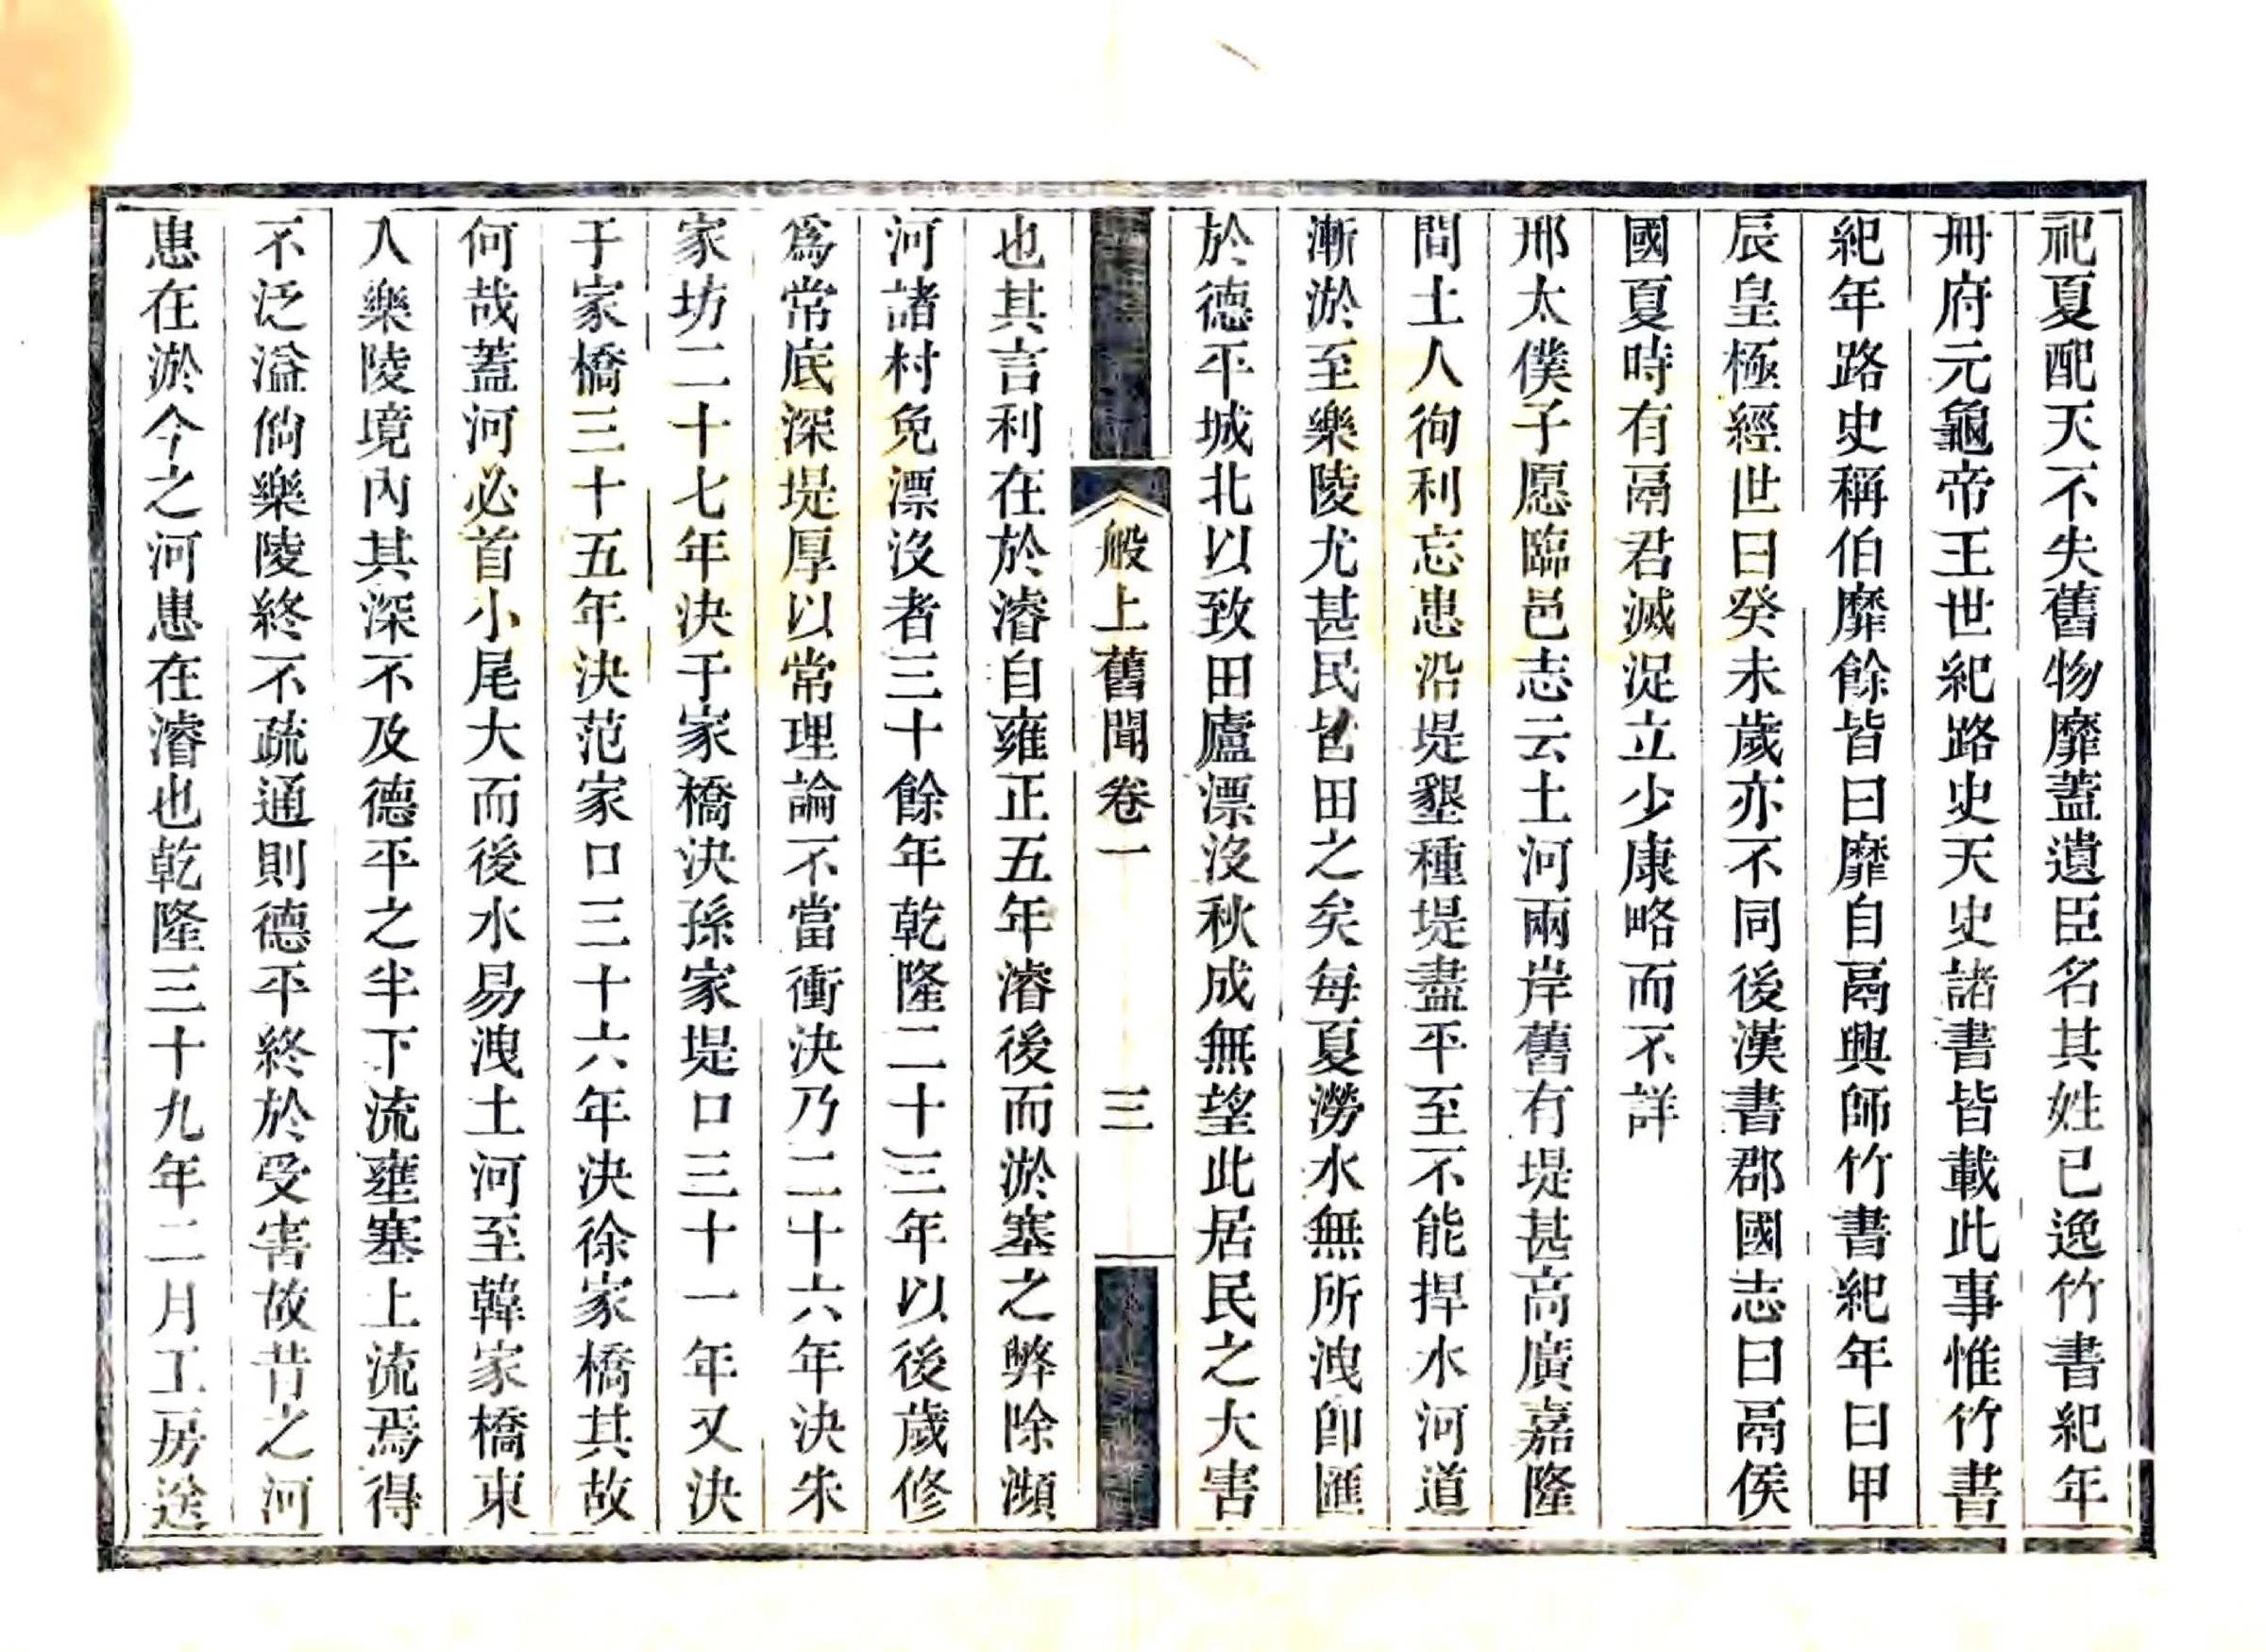 祀夏配天不失舊物靡蓋遺臣名其姓已逸竹書紀年
冊府元龜帝王世紀路史天史諸書皆載此事惟竹書
紀年路史稱伯靡餘皆曰靡自鬲興師竹書紀年曰甲
辰皇極經世曰癸未歲亦不同後漢書郡國志曰鬲侯
國夏時有鬲君滅浞立少康略而不詳
邢太僕子愿臨邑志云土河兩岸舊有堤甚高廣嘉隆
間土人徇利忘患沿堤墾種堤盡平至不能捍水河道
漸淤至樂陵尤甚民皆田之矣每夏澇水無所洩卽匯
於德平城北以致田廬漂沒秋成無望此居民之大害
般上舊聞卷一 三
也其言利在於濬自雍正五年濬後而淤塞之弊除瀕
河諸村免漂沒者三十餘年乾隆二十三年以後歲修
爲常底深堤厚以常理論不當衝決乃二十六年決朱
家坊二十七年決于家橋決孫家堤口三十一年又決
于家橋三十五年決范家口三十六年決徐家橋其故
何哉蓋河必首小尾大而後水易洩土河至韓家橋東
入樂陵境內其深不及德平之半下流壅塞上流焉得
不泛溢倘樂陵終不疏通則德平終於受害故昔之河
患在淤今之河患在濬也乾隆三十九年二月工房送